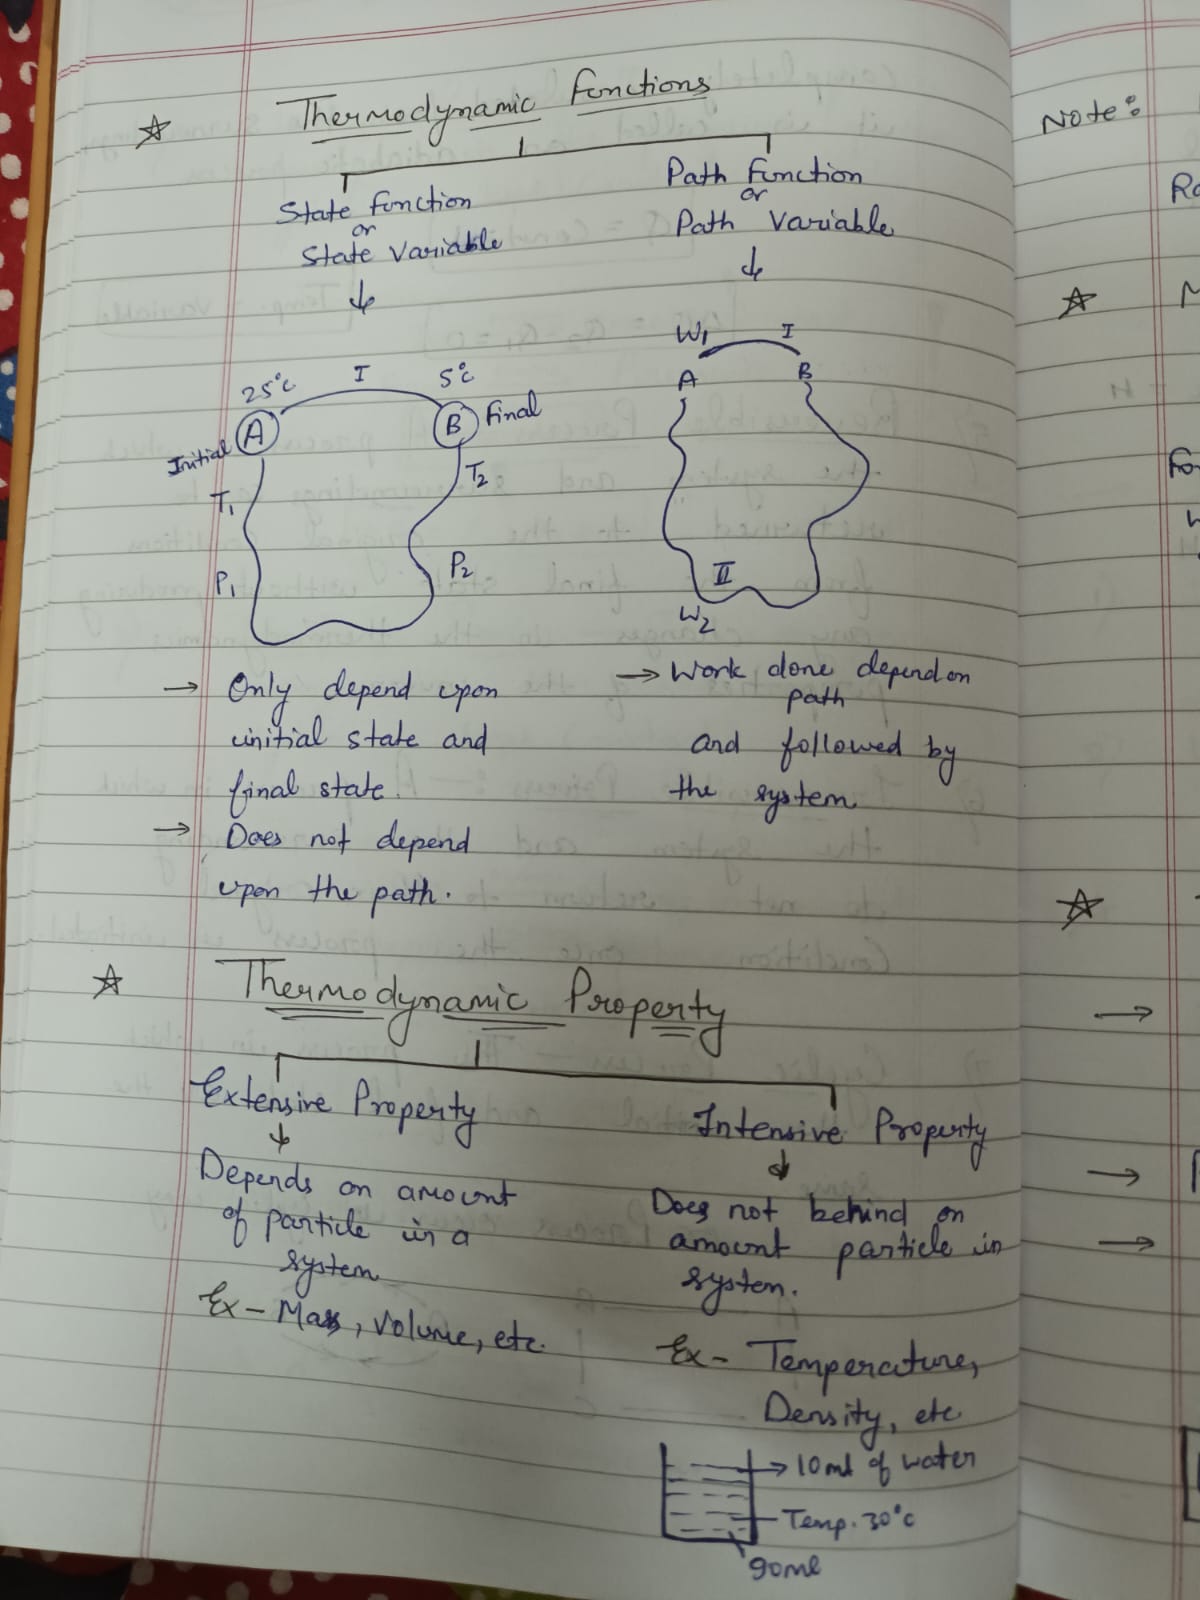 Thermodynamic Functions
State function
or
State Variable
Path Function
or
Path Variable
25°c
I
5°c
A
B
Final
Initial
T1
T2
P1
P2
W1
I
A
B
II
W2
→ Only depend upon
initial state and
final state.
→ Does not depend
upon the path.
→ Work done depend on
path
and followed by
the system
Thermodynamic Property
Extensive Property
Depends on amount
of particle in a
system
Ex - Mass, Volume, etc.
Intensive Property
Does not behind on
amount particle in
system.
Ex - Temperature,
Density, etc
→ 10ml of water
Temp. 30°c
90ml
Note: